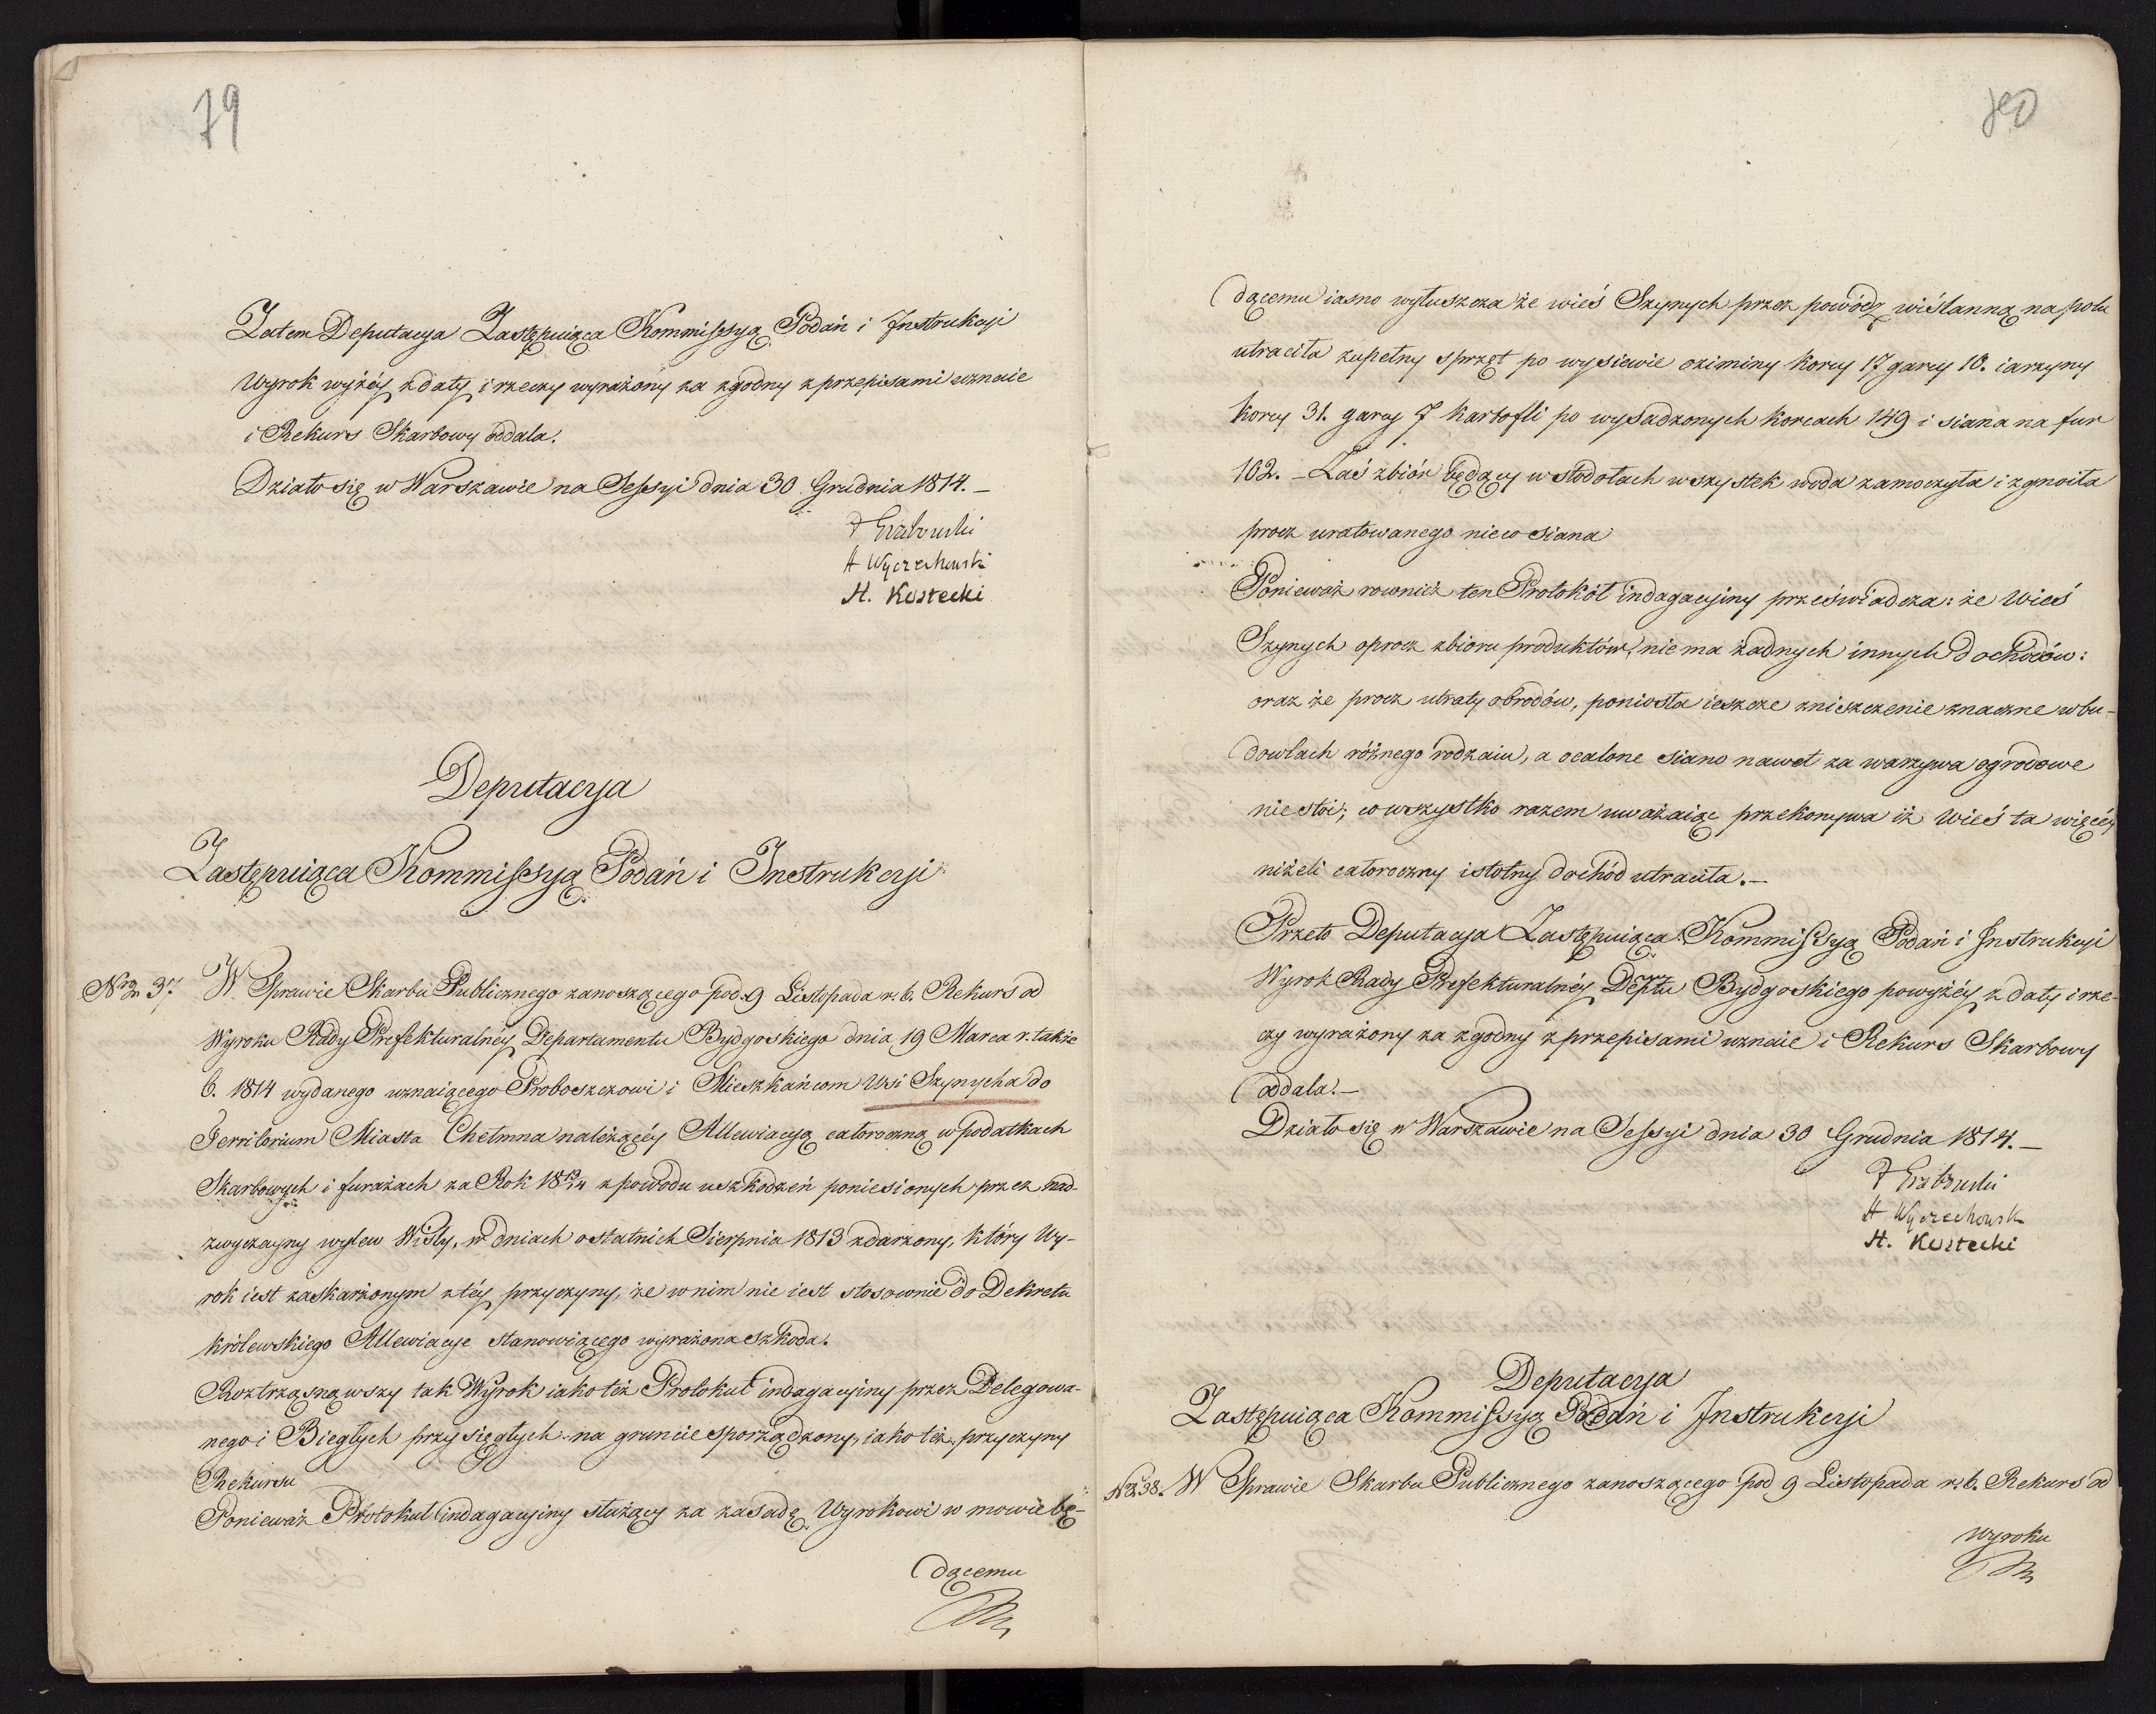 79
Zatem Deputacya Zastępuiąca Kommissyą Podań i Instrukcyi
Wyrok wyżéy z daty i rzeczy wyrażony za zgodny z przepisami uznaie
i Rekurs Skarbowy oddala.
Działo się w Warszawie na Sessyi dnia 30 Grudnia 1814. –
F Grabowski
A Wyczechowsk
H. Kostecki
Deputacya
Zastępuiąca Kommissyą Podań i Instrukcyi
Nro 37. W Sprawie Skarbu Publicznego zanoszącego pod 9 Listopada r. b. Rekurs od
Wyroku Rady Prefekturalnéy Departamentu Bydgoskiego dnia 19 Marca r. także
b. 1814 wydanego uznaiącego Proboszczowi i Mieszkańcom Wsi Szynycha do
Territorium Miasta Chełmna należącéy Allewiacyą całoroczną w podatkach
Skarbowych i furażach za Rok 1813/14 z powodu uszkodzeń poniesionych przez nad-
zwyczayny wylew Wisły, w dniach ostatnich Sierpnia 1813 zdarzony, który Wy-
rok iest zaskarżonym z téy przyczyny, że w nim nie iest stosownie do Dekretu
królewskiego Allewiacye stanowiącego wyrażona szkoda.
Roztrząsnąwszy tak Wyrok iako też Protokuł indagacyiny przez Delegowa-
nego i Biegłych przysięgłych na gruncie sporządzony, iako też przyczyny
Rekursu
Ponieważ Protokuł indagacyiny służący za zasadę Wyrokowi w mowie bę-
dącemu
80
dącemu iasno wyłuszcza że wieś Szynych przez powódź wiślanną na polu
utraciła zupełny sprzęt po wysiewie oziminy korcy 17 garcy 10. iarzyny
korcy 31. garcy 7 kartofli po wysadzonych korcach 149 i siana na fur
102. – Zaś zbiór będący w stodołach wszystek woda zamoczyła i zgnoiła
procz uratowanego nieco siana
Ponieważ rownież ten Protokół indagacyiny przeświadcza: że Wieś
Szynych oprocz zbioru produktów, nie ma żadnych innych dochodów:
oraz że procz utraty obrodów, poniosła ieszcze zniszczenie znaczne w bu-
dowlach różnego rodzaiu, a ocalone siano nawet za warzywa ogrodowe
nie stoi; co wszystko razem uważaiąc przekonywa iż Wieś ta więcéy
niżeli całoroczny istotny dochód utraciła. –
Przeto Deputacya Zastępuiąca Kommissyą Podań i Instrukcyi
Wyrok Rady Prefekturalnéy Deptu Bydgoskiego powyżéy z daty i rze-
czy wyrażony za zgodny z przepisami uznaie i Rekurs Skarbowy
oddala. –
Działo się w Warszawie na Sessyi dnia 30 Grudnia 1814. –
F Grabowski
A Wyczechowsk
H. Kostecki
Deputacya
Zastępuiąca Kommissyą Podań i Instrukcyi
Nro 38. W Sprawie Skarbu Publicznego zanoszącego pod 9 Listopada r. b. Rekurs od
Wyroku